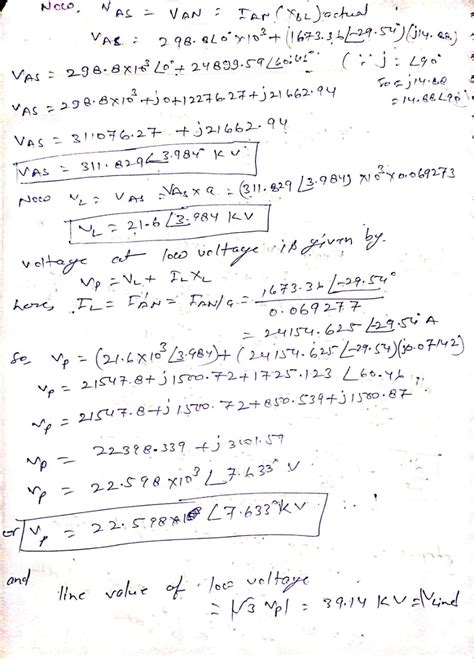 Now, VAS = VAN = IAN (XBL) actual
VAS = 298.8∠0°×10³ + (1673.36∠-29.54°)(j14.88)
VAS = 298.8×10³∠0° + 24899.59∠60.46° (∵ j = ∠90°
VAS = 298.8×10³ + j0 + 12276.27 + j21662.94
So = j14.88
= 14.88∠90°
VAS = 311076.27 + j21662.94
VAS = 311.829∠3.984° KV
Now VL = VAS = VAS × a = (311.829∠3.984) ×10³×0.069273
VL = 21.6∠3.984 KV
Voltage at low voltage is given by.
Vp = VL + IL XL
here, IL = I'AN = IAN/a = 1673.36∠-29.54°
0.069277
= 24154.625∠-29.54° A
So Vp = (21.6×10³∠3.984) + (24154.625∠-29.54)(j0.07142)
Vp = 21547.8 + j1500.72 + 1725.123∠60.46
Vp = 21547.8 + j1500.72 + 850.539 + j1500.87
Vp = 22398.339 + j3001.59
Vp = 22.598×10³∠7.633° V
or Vp = 22.598 ∠7.633° KV
and line value of low voltage
= |√3 Vp| = 39.14 KV = |Vline|